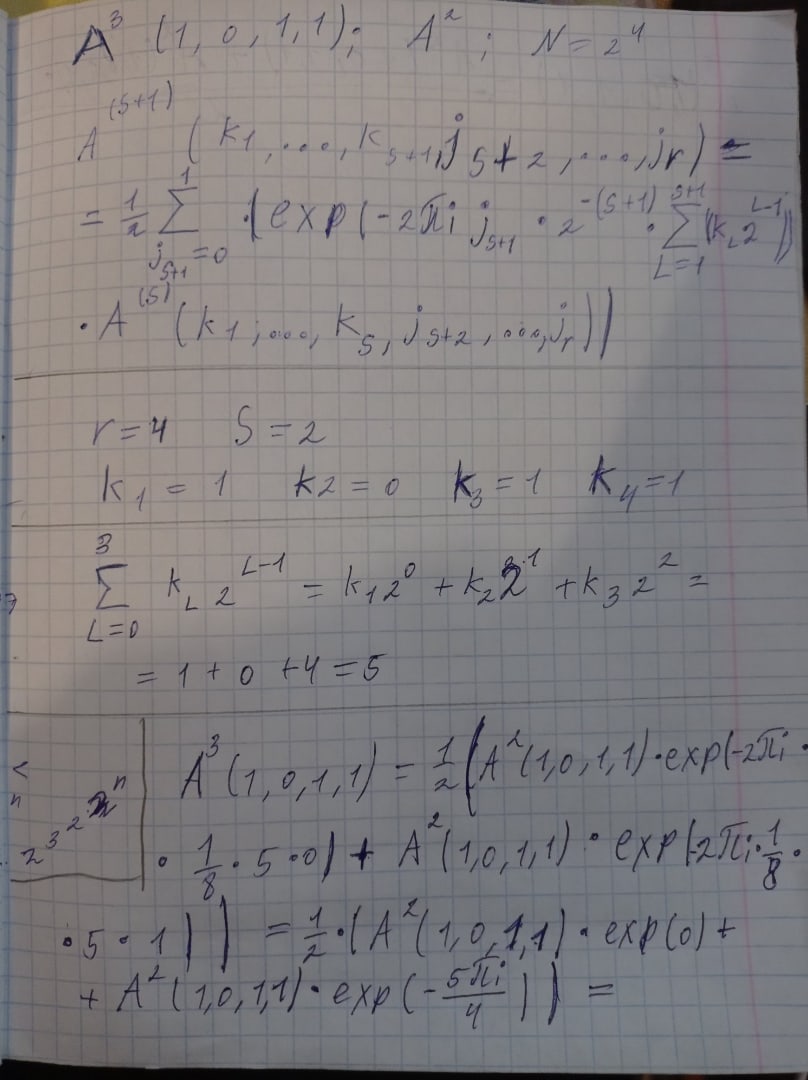 A³ (1, 0, 1, 1); A²; N = 2⁴
A^(S+1) (k1, ..., k_{S+1}, j_{S+2}, ..., j_r) =
= 1/2 Σ_{j_{S+1}=0}^{1} · (exp(-2πi j_{S+1} · 2^{-(S+1)} · Σ_{L=1}^{S+1} (k_L 2^{L-1})
· A^(S) (k1, ..., k_S, j_{S+2}, ..., j_r))
r = 4 S = 2
k1 = 1 k2 = 0 k3 = 1 k4 = 1
Σ_{L=0}^{3} k_L 2^{L-1} = k1 2⁰ + k2 2¹ + k3 2² =
= 1 + 0 + 4 = 5
<
n
2³ 2² 2ⁿ
A³ (1, 0, 1, 1) = 1/2 (A² (1, 0, 1, 1) · exp(-2πi ·
· 1/8 · 5 · 0) + A² (1, 0, 1, 1) · exp(-2πi · 1/8 ·
· 5 · 1)) = 1/2 · (A² (1, 0, 1, 1) · exp(0) +
+ A² (1, 0, 1, 1) · exp(-5πi/4)) =